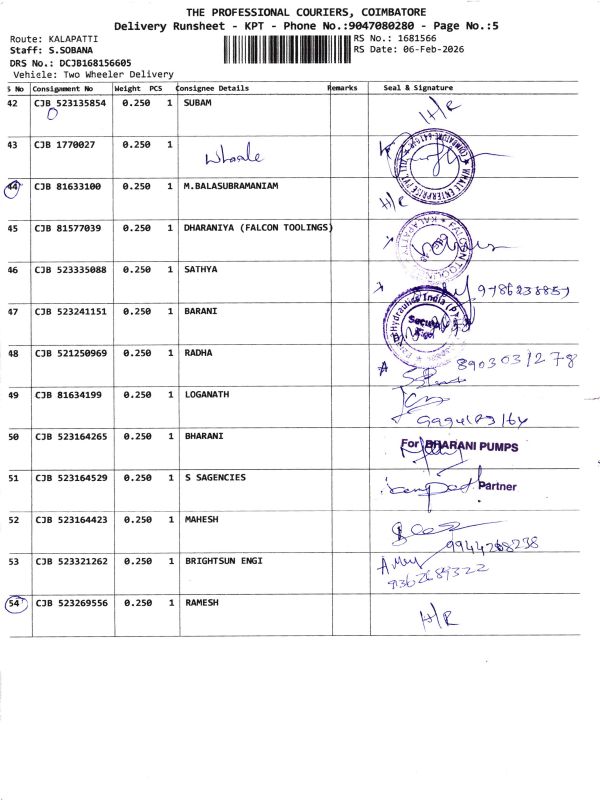 THE PROFESSIONAL COURIERS, COIMBATORE
Delivery Runsheet - KPT - Phone No.:9047080280 - Page No.:5
Route: KALAPATTI RS No.: 1681566
Staff: S.SOBANA RS Date: 06-Feb-2026
DRS No.: DCJB168156605
Vehicle: Two Wheeler Delivery
S No Consignment No Weight PCS Consignee Details Remarks Seal & Signature
42 CJB 523135854 0.250 1 SUBAM H/R
43 CJB 1770027 0.250 1 Whale
WHALE ENTERPRISE PVT. LTD.
44 CJB 81633100 0.250 1 M.BALASUBRAMANIAM H/R
45 CJB 81577039 0.250 1 DHARANIYA (FALCON TOOLINGS)
FALCON TOOLINGS KALAPATTI
46 CJB 523335088 0.250 1 SATHYA 9786238857
47 CJB 523241151 0.250 1 BARANI
Hydraulics India (P)
Security
48 CJB 521250969 0.250 1 RADHA 8903031278
49 CJB 81634199 0.250 1 LOGANATH
50 CJB 523164265 0.250 1 BHARANI For BHARANI PUMPS
51 CJB 523164529 0.250 1 S SAGENCIES Partner
52 CJB 523164423 0.250 1 MAHESH 9944268238
53 CJB 523321262 0.250 1 BRIGHTSUN ENGI 9362689322
54 CJB 523269556 0.250 1 RAMESH H/R